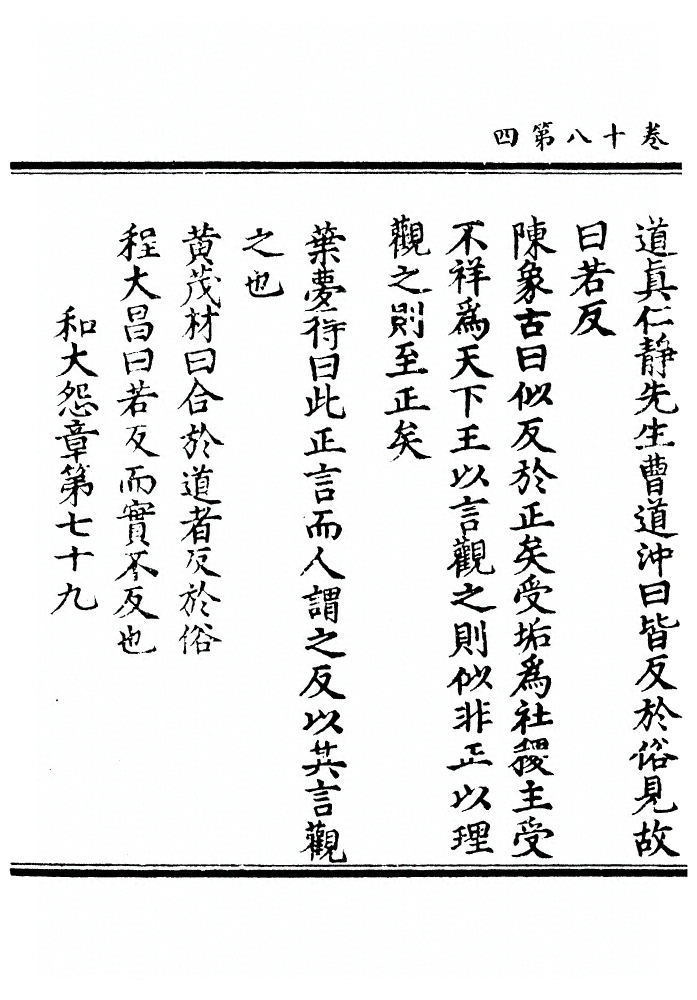 卷十八第四
道真仁靜先生曹道沖曰皆反於俗見故
曰若反
陳象古曰似反於正矣受垢爲社稷主受
不祥爲天下王以言觀之則似非正以理
觀之則至正矣
葉夢得曰此正言而人謂之反以其言觀
之也
黃茂材曰合於道者反於俗
程大昌曰若反而實不反也
和大怨章第七十九